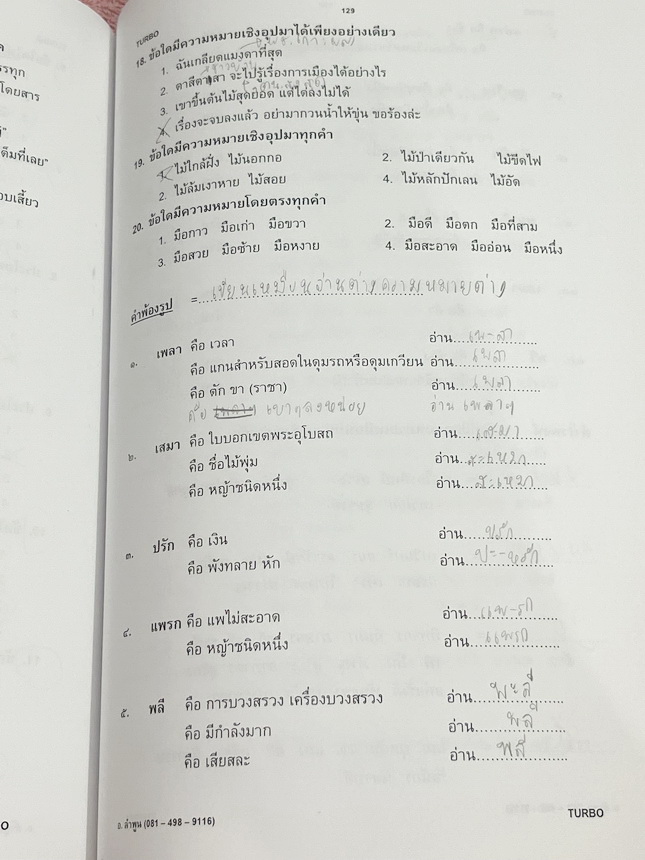 129
TURBO
18. ข้อใดมีความหมายเชิงอุปมาได้เพียงอย่างเดียว
1. ฉันเกลียดแมงดาที่สุด
2. ตาสีตาสา จะไปรู้เรื่องการเมืองได้อย่างไร
3. เขาขึ้นต้นไม้สุดยอด แต่ไต่ลงไม่ได้
4. เรื่องจะจบลงแล้ว อย่ามากวนน้ำให้ขุ่น ขอร้องล่ะ
19. ข้อใดมีความหมายเชิงอุปมาทุกคำ
1. ไม้ใกล้ฝั่ง ไม้นอกกอ 2. ไม้ป่าเดียวกัน ไม้ขีดไฟ
2. ไม้ล้มเงาหาย ไม้สอย 4. ไม้หลักปักเลน ไม้อัด
20. ข้อใดมีความหมายโดยตรงทุกคำ
1. มือกาว มือเก่า มือขวา 2. มือดี มือตก มือที่สาม
3. มือสวย มือซ้าย มือหงาย 4. มือสะอาด มืออ่อน มือหนึ่ง
คำพ้องรูป = เขียนเหมือนอ่านต่างความหมายต่าง
๑. เพลา คือ เวลา อ่าน เพ-ลา
คือ แกนสำหรับสอดในดุมรถหรือดุมเกวียน อ่าน เพลา
คือ ตัก ขา (ราชา) อ่าน เพลา
คือ เบาๆลงหน่อย อ่าน เพลาๆ
๒. เสมา คือ ใบบอกเขตพระอุโบสถ อ่าน เส-มา
คือ ชื่อไม้พุ่ม อ่าน สะ-เหมา
คือ หญ้าชนิดหนึ่ง อ่าน สะ-เหมา
๓. ปรัก คือ เงิน อ่าน ปรัก
คือ พังทลาย หัก อ่าน ปะ-หรัก
๔. แพรก คือ แพไม่สะอาด อ่าน แพ-รก
คือ หญ้าชนิดหนึ่ง อ่าน แพรก
๕. พลี คือ การบวงสรวง เครื่องบวงสรวง อ่าน พะลี
คือ มีกำลังมาก อ่าน พลี
คือ เสียสละ อ่าน พลี
อ. ลำพูน (081-498-9116) TURBO